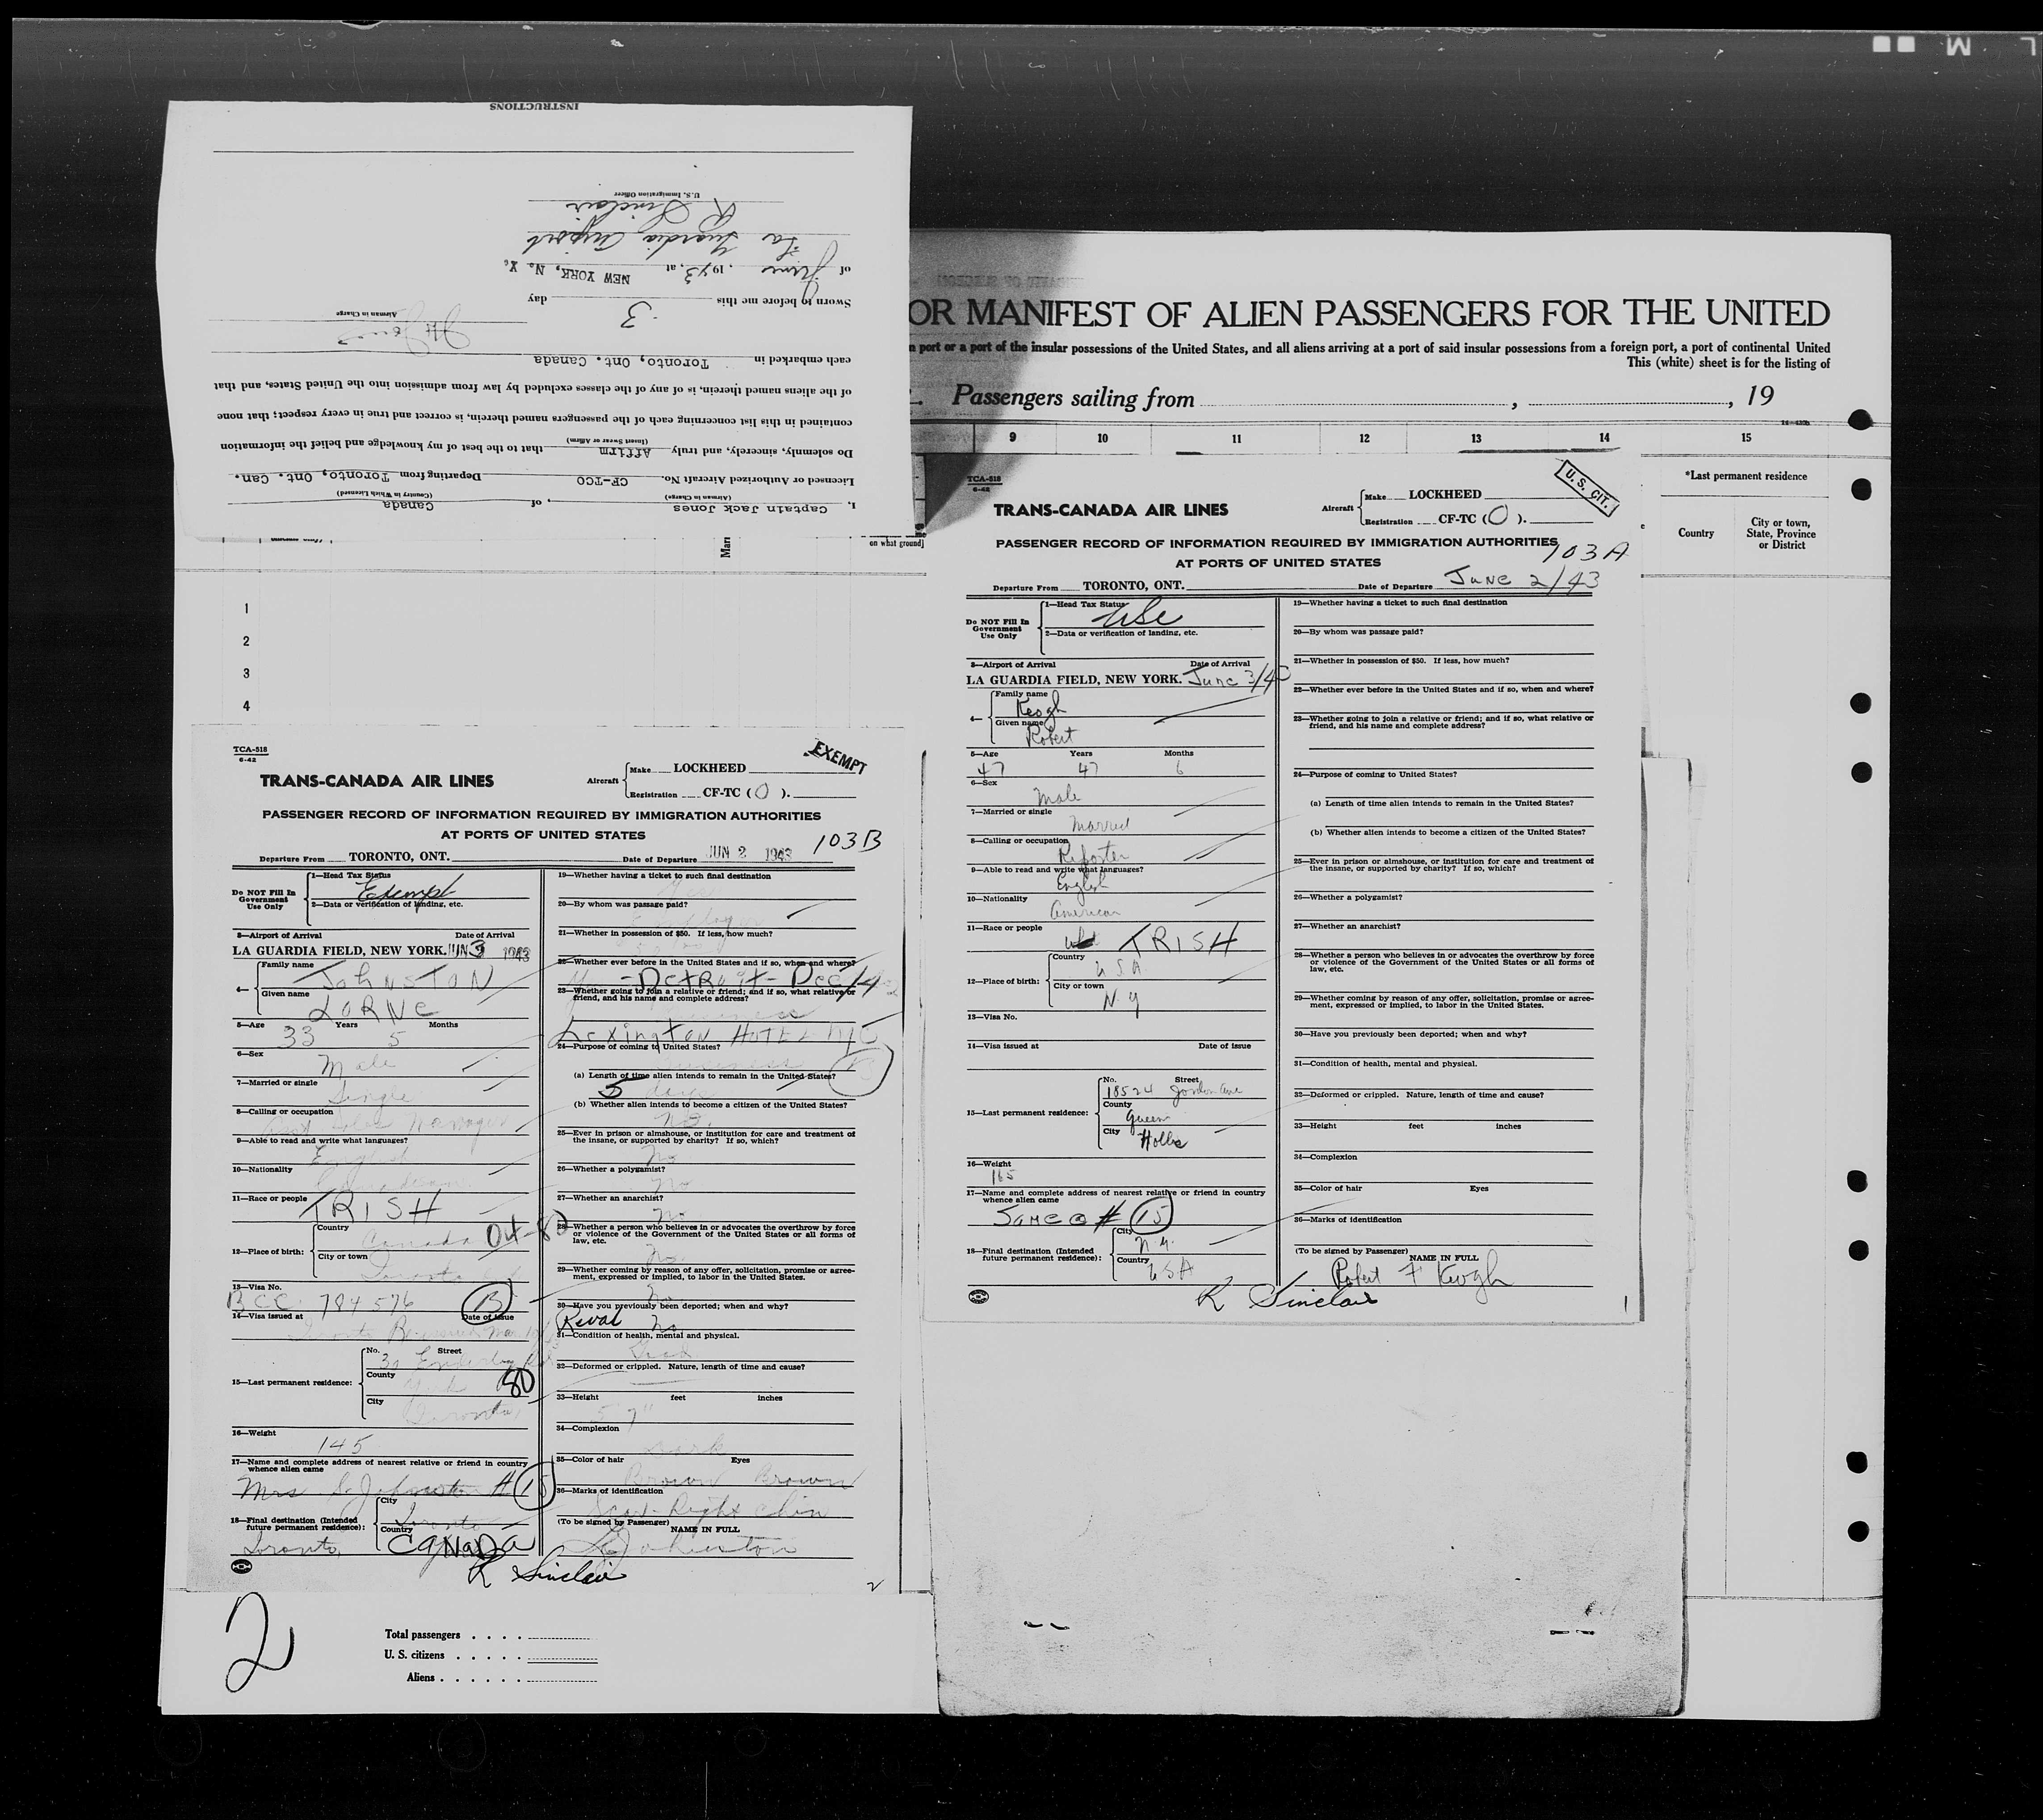 INSTRUCTIONS
I, Captain Jack Jones, of Canada
(Airman in Charge) (Country in Which Licensed)
Licensed or Authorized Aircraft No. CF-TCO Departing from Toronto, Ont. Can.
Do solemnly, sincerely, and truly Affirm that to the best of my knowledge and belief the information
(Insert Swear or Affirm)
contained in this list concerning each of the passengers named therein, is correct and true in every respect; that none
of the aliens named therein, is of any of the classes excluded by law from admission into the United States, and that
each embarked in Toronto, Ont. Canada
Airman in Charge
Sworn to before me this 3 day
of June, 1943, at NEW YORK, N. Y.
La Guardia Airport
R Sinclair
U.S. Immigration Officer
OR MANIFEST OF ALIEN PASSENGERS FOR THE UNITED
port or a port of the insular possessions of the United States, and all aliens arriving at a port of said insular possessions from a foreign port, a port of continental United
This (white) sheet is for the listing of
Passengers sailing from , , 19
9 10 11 12 13 14 15
*Last permanent residence
Country
City or town, State, Province or District
on what ground]
1
2
3
4
TCA-518
6-42
EXEMPT
TRANS-CANADA AIR LINES
Aircraft
Make LOCKHEED
Registration CF-TC (O).
PASSENGER RECORD OF INFORMATION REQUIRED BY IMMIGRATION AUTHORITIES
AT PORTS OF UNITED STATES
103B
Departure From TORONTO, ONT. Date of Departure JUN 2 1943
Do NOT Fill In Government Use Only
1—Head Tax Status Exempt
2—Data or verification of landing, etc.
3—Airport of Arrival Date of Arrival
LA GUARDIA FIELD, NEW YORK. JUN 3 1943
4— Family name JOHNSTON
Given name LORNE
5—Age Years Months
33 5
6—Sex
Male
7—Married or single
Single
8—Calling or occupation
Manager
9—Able to read and write what languages?
English
10—Nationality
Canadian
11—Race or people IRISH
12—Place of birth: Country Canada
City or town
Toronto
13—Visa No.
BCC 784576 (B)
14—Visa issued at Date of issue
Toronto
15—Last permanent residence: No. Street
30
County
York 80
City
Toronto
16—Weight
145
17—Name and complete address of nearest relative or friend in country whence alien came
Mrs Johnston # 15
18—Final destination (Intended future permanent residence): City Toronto
Country
Toronto, CANADA
19—Whether having a ticket to such final destination
Yes
20—By whom was passage paid?
21—Whether in possession of $50. If less, how much?
22—Whether ever before in the United States and if so, when and where?
- Detroit - Dec/42
23—Whether going to join a relative or friend; and if so, what relative or friend, and his name and complete address?
Business
Lexington Hotel NYC
24—Purpose of coming to United States?
Business
(a) Length of time alien intends to remain in the United States?
5 days
(b) Whether alien intends to become a citizen of the United States?
No.
25—Ever in prison or almshouse, or institution for care and treatment of the insane, or supported by charity? If so, which?
No
26—Whether a polygamist?
No
27—Whether an anarchist?
No
28—Whether a person who believes in or advocates the overthrow by force or violence of the Government of the United States or all forms of law, etc.
No
29—Whether coming by reason of any offer, solicitation, promise or agreement, expressed or implied, to labor in the United States.
No
30—Have you previously been deported; when and why?
No
31—Condition of health, mental and physical.
Good
32—Deformed or crippled. Nature, length of time and cause?
33—Height feet inches
5 7"
34—Complexion
Dark
35—Color of hair Eyes
Brown Brown
36—Marks of identification
Scar Right Chin
(To be signed by Passenger) NAME IN FULL
L Johnston
R Sinclair
2
2
Total passengers
U. S. citizens
Aliens
TCA-518
6-42
U. S. CIT.
TRANS-CANADA AIR LINES
Aircraft
Make LOCKHEED
Registration CF-TC (O).
PASSENGER RECORD OF INFORMATION REQUIRED BY IMMIGRATION AUTHORITIES
103A
AT PORTS OF UNITED STATES
Departure From TORONTO, ONT. Date of Departure June 2/43
Do NOT Fill In Government Use Only
1—Head Tax Status USC
2—Data or verification of landing, etc.
3—Airport of Arrival Date of Arrival
LA GUARDIA FIELD, NEW YORK. June 3/43
4— Family name
Keogh
Given name
Robert
5—Age Years Months
47 47 6
6—Sex
Male
7—Married or single
Married
8—Calling or occupation
Reporter
9—Able to read and write what languages?
English
10—Nationality
American
11—Race or people
IRISH
12—Place of birth: Country
USA
City or town
N.Y
13—Visa No.
14—Visa issued at Date of issue
15—Last permanent residence: No. Street
18524 Jordan Ave
County
Queen
City
Hollis
16—Weight
165
17—Name and complete address of nearest relative or friend in country whence alien came
Same @ # 15
18—Final destination (Intended future permanent residence): City
N.Y.
Country
USA
19—Whether having a ticket to such final destination
20—By whom was passage paid?
21—Whether in possession of $50. If less, how much?
22—Whether ever before in the United States and if so, when and where?
23—Whether going to join a relative or friend; and if so, what relative or friend, and his name and complete address?
24—Purpose of coming to United States?
(a) Length of time alien intends to remain in the United States?
(b) Whether alien intends to become a citizen of the United States?
25—Ever in prison or almshouse, or institution for care and treatment of the insane, or supported by charity? If so, which?
26—Whether a polygamist?
27—Whether an anarchist?
28—Whether a person who believes in or advocates the overthrow by force or violence of the Government of the United States or all forms of law, etc.
29—Whether coming by reason of any offer, solicitation, promise or agreement, expressed or implied, to labor in the United States.
30—Have you previously been deported; when and why?
31—Condition of health, mental and physical.
32—Deformed or crippled. Nature, length of time and cause?
33—Height feet inches
34—Complexion
35—Color of hair Eyes
36—Marks of identification
(To be signed by Passenger) NAME IN FULL
Robert F Keogh
R Sinclair
1